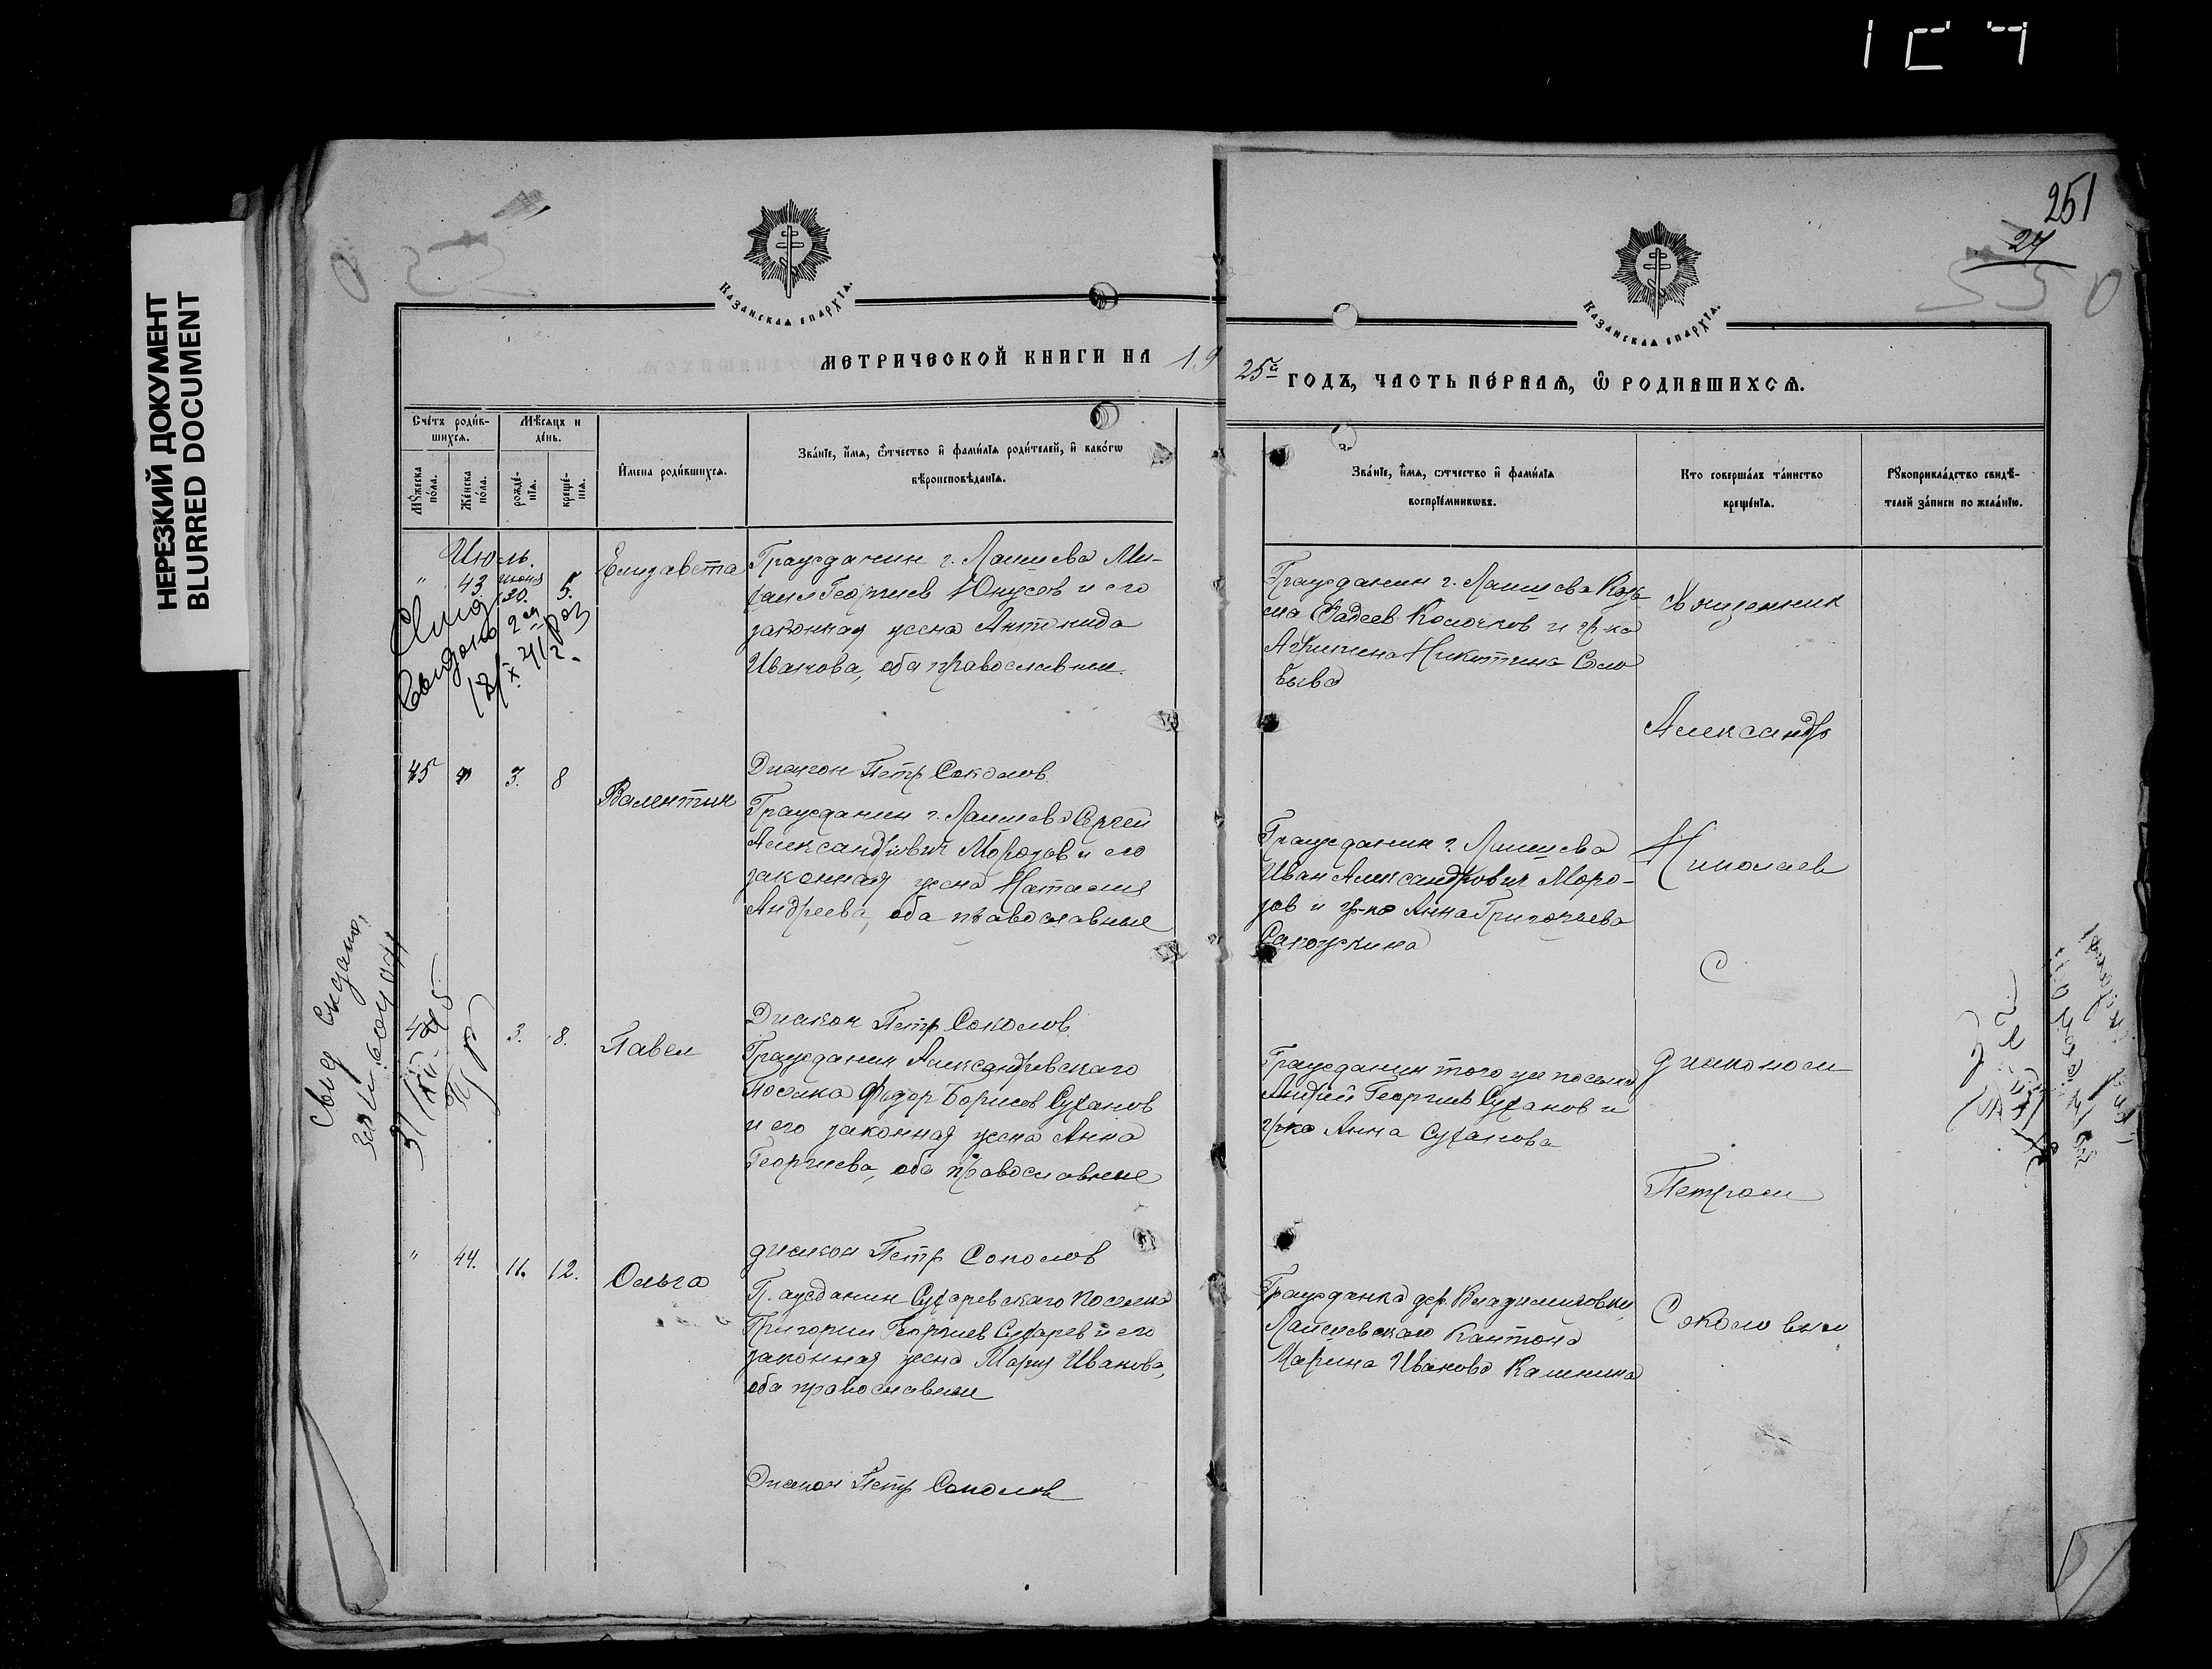 251
24
НЕРЕЗКИЙ ДОКУМЕНТ
BLURRED DOCUMENT
Казанская епархїа.
Казанская епархїа.
МЕТРИЧЕСКОЙ КНИГИ НА 19
25 ГОДЪ, ЧАСТЬ ПЕРВАѦ, Ѿ РОДИВШИХСѦ.
Счетъ родив-
шихсѧ.
Мѣсѧцъ и
день.
Мꙋжеска
пола.
Женска
пола.
рожде-
нїѧ.
креще-
нїѧ.
Имена родившихсѧ.
Званїе, имѧ, ѿчество и фамилїѧ родителей, и какогѡ
вѣроисповѣданїѧ.
Званїе, имѧ, ѿчество и фамилїѧ
воспрїемникѡвъ.
Кто совершалъ таинство
крещенїѧ.
Рꙋкоприкладство свидѣ-
телей записи по желанїю.
Июль.
" 43. июня 20. 5.
Елизавета
Гражданин г. Лаишева Ми-
хаил Георгиев Юнусов и его
законная жена Антонида
Иванова, оба православные.
Гражданин г. Лаишева Козь-
ма Фадеев Колочков и гр-ка
Агрипина Никитина Соло
вьева
Священник
Александр
Диакон Петр Соколов.
45 3. 8
Валентин
Гражданин г. Лаишева Сергей
Александрович Морозов и его
законная жена Наталия
Андреева, оба православные
Гражданин г. Лаишева
Иван Александрович Моро-
зов и гр-ка Анна Григорьева
Сапожкина
Николаев
С
Диакон Петр Соколов.
3. 8.
Павел
Гражданин Александровского
Поселка Федор Борисов Суханов
и его законная жена Анна
Георгиева, оба православные
Гражданин того же поселка
Андрей Георгиев Суханов и
гр-ка Анна Суханова
диаконом
Петром
диакон Петр Соколов
" 44. 11. 12.
Ольга
Гражданин Сухаревского поселка
Григорий Георгиев Сухарев и его
законная жена Мария Иванова,
оба православные
Гражданка дер. Владимировки,
Лаишевского Кантона
Марина Иванова Калинина
Соколовым
Диакон Петр Соколов